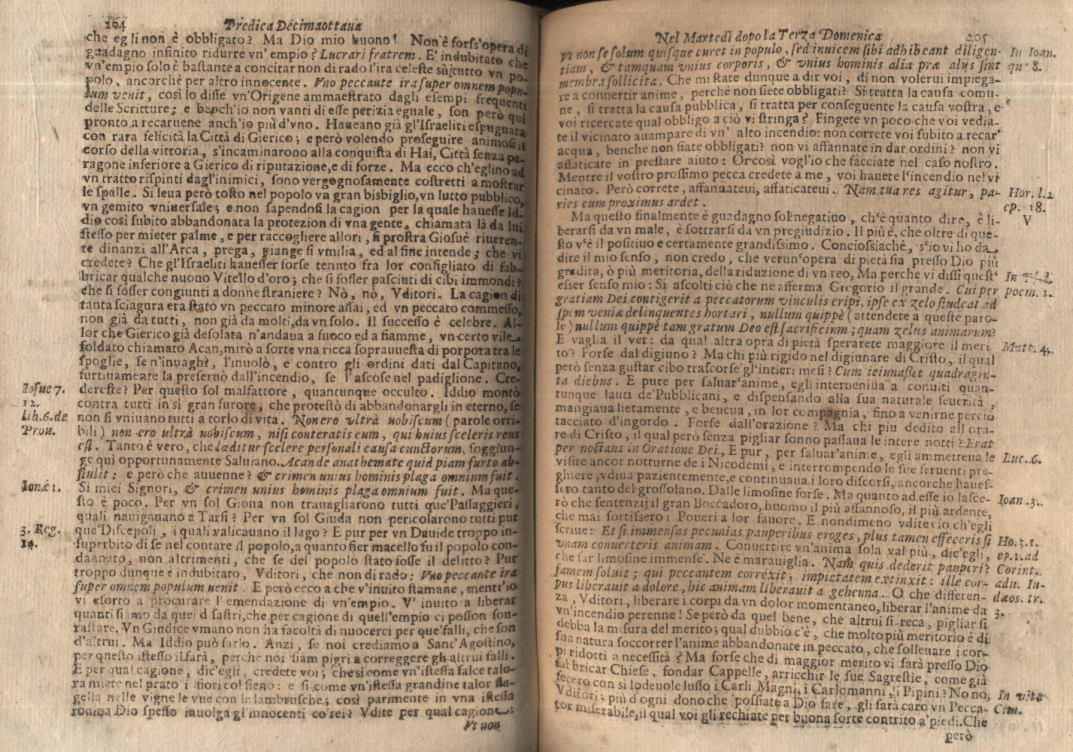 204 Predica Decimaottaua
che egli non è obbligato? Ma Dio mio buono! Non è forss'opera di
guadagno infinito ridurre vn'empio? Lucrari fratrem. E' indubitato che
vn'empio solo è bastante a concitar non di rado l'ira celeste sù tutto vn po-
polo, ancorchè per altro innocente. Vno peccante ira super omnem popu-
lum venit, così lo disse vn'Origene ammaestrato dagli esempi frequenti
delle Scritture; e bench'io non vanti di esse perizia eguale, son però qui
pronto a recaruene anch'io più d'vno. Haueano già gl'Israeliti espugnata
con rara felicità la Città di Gierico; e però volendo proseguire animosi il
corso della vittoria, s'incaminarono alla conquista di Hai, Città senza pa-
ragone inferiore a Gierico di riputazione, e di forze. Ma ecco ch'eglino ad
vn tratto rispinti dagl'inimici, sono vergognosamente costretti a mostrar
le spalle. Si leua però tosto nel popolo vn gran bisbiglio, vn lutto pubblico,
vn gemito vniuersale; e non sapendosi la cagion per la quale hauesse Id-
dio così subito abbandonata la protezion di vna gente, chiamata là da lui
stesso per mieter palme, e per raccogliere allori, si prostra Giosuè riueren-
te dinanzi all'Arca, prega, piange si vmilia, ed al fine intende; che vi
credete? Che gl'Israeliti hauesser forse tenuto fra lor consiglio di fab-
bricar qualche nuouo Vitello d'oro; che si fosser pasciuti di cibi immondi?
che si fosser congiunti a donne straniere? Nò, nò, Vditori. La cagion di
tanta sciagura era stato vn peccato minore assai, ed vn peccato commesso,
non già da tutti, non già da molti, da vn solo. Il successo è celebre. Al-
lor che Gierico già desolata n'andaua a fuoco ed a fiamme, vn certo vile
soldato chiamato Acan, mirò a sorte vna ricca soprauuesta di porpora tra le
spoglie, se n'inuaghì, l'inuolò, e contro gli ordini dati dal Capitano,
furtiuamente la preseruò dall'incendio, se l'ascose nel padiglione. Cre-
Iosue 7. dereste? Per questo sol malfattore, quantunque occulto. Iddio montò
12. contra tutti in sì gran furore, che protestò di abbandonargli in eterno, se
lib. 6. de non si vniuano tutti a torlo di vita. Non ero vltrà vobiscum (parole orri-
Prou. bili) non ero vltrà vobiscum, nisi conteratis eum, qui huius sceleris reus
est. Tanto è vero, che laditur scelere personali causa cunctorum, soggiun-
ge quì opportunamente Saluiano. Acan de anathemate quid piam furto ab-
stulit: e però che auuenne? & crimen unius hominis plaga omnium fuit.
Ionæ 1. Sì miei Signori, & crimen unius hominis plaga omnium fuit. Ma que-
sto è poco. Per vn sol Giona non trauagliarono tutti que'Passaggieri,
quali nauigauano a Tarsi? Per vn sol Giuda non pericolarono tutti pur
3. Reg. que'Discepoli, i quali valicauano il lago? E pur per vn Dauide troppo in-
14. superbito di se nel contare il popolo, a quanto fier macello fu il popolo con-
dannato, non altrimenti, che se del popolo stato fosse il delitto? Pur
troppo dunque è indubitato, Vditori, che non di rado: Vno peccante ira
super omnem populum uenit. E però ecco a che v'inuito stamane, mentr'io
vi esorto a procurare l'emendazione di vn'empio. V'inuito a liberar
quanti siamo da que' disastri, che per cagione di quell'empio ci posson son-
rastare. Vn Giudice vmano non ha facoltà di nuocerci per que'falli, che son
d'altrui. Ma Iddio può farlo. Anzi, se noi crediamo a Sanc'Agostino,
per questo istesso il farà, perche noi siam pigri a correggere gli altrui falli.
E per qual cagione, dic'egli, credete voi; che sì come vn'istessa falce talo-
ra miete nel prato i fiori col fieno: e sì come vn'istessa grandine talor fla-
gella nelle vigne le vue con le lambrusche; così parimente in vna istessa
rouina Dio spesso inuolga gl'innocenti co'rei? Vdite per qual cagione:
Vt non
Nel Martedì dopo la Terza Domenica 205
Vt non se solum quisque curet in populo, sed inuicem sibi adhibeant diligen- In Ioan.
tiam, & tamquam vnius corporis, & vnius hominis alia præ alys sint qu. 8.
membra sollicita. Che mi state dunque a dir voi, di non volerui impiega-
re a conuertir anime, perchè non siete obbligati? Si tratta la causa comu-
ne, si tratta la causa pubblica, si tratta per conseguente la causa vostra, e
voi ricercate qual obbligo a ciò vi stringa? Fingete vn poco che voi vedia-
te il vicinato auampare di vn'alto incendio: non correte voi subito a recar'
acqua, benche non siate obbligati? non vi affannate in dar ordini? non vi
affaticate in prestare aiuto: Or così vogl'io che facciate nel caso nostro.
Mentre il vostro prossimo pecca credete a me, voi hauete l'incendio nel vi
cinato. Però correte, affannateui, affaticateui. Nam tua res agitur, pa- Hor. l. 2
ries cum proximus ardet. ep. 18.
Ma questo finalmente è guadagno sol negatiuo, ch'è quanto dire, è li- V
berarsi da vn male, è sottrarsi da vn pregiudizio. Il più è, che oltre di que-
sto v'è il positiuo e certamente grandissimo. Conciossiachè, s'io vi ho da
dire il mio senso, non credo, che verun'opera di pietà sia presso Dio più
gradita, ò più meritoria, della riduzione di vn reo, Ma perche vi dissi quest'
esser senso mio: Si ascolti ciò che ne afferma Gregorio il grande. Cui per
gratiam Dei contigerit a peccatorum vinculis eripi, ipse ex zelo studeat ad poem. 1.
spem venia delinquentes hortari, nullum quippè (attendete a queste paro-
le) nullum quippè tam gratum Deo est sacrificium; quam zelus animarum?
E vaglia il ver: da qual altra opra di pietà sperarete maggiore il meri Matt. 4.
to? Forse dal digiuno? Ma chi più rigido nel digiunare di Cristo, il qual
però senza gustar cibo trascorse gl'intieri mesi? Cum ieiunasset quadragin-
ta diebus. E pure per saluar'anime, egli interueniua a conuiti quan-
tunque lauti de'Pubblicani, e dispensando alla sua naturale seuerità
mangiaua lietamente, e beueua, in lor compagnia, fino a venirne perciò
tacciato d'ingordo. Forse dall'orazione? Ma chi più dedito all'ora-
re di Cristo, il qual però senza pigliar sonno passaua le intere notti? Erat
per noctans in Oratione Dei, E pur, per saluar'anime, egli ammetteua le Luc. 6.
visite ancor notturne de i Nicodemi, e interrompendo le sue seruenti pre-
ghiere, vdiua pazientemente, e continuaua i loro discorsi, ancorche haues-
sero tanto del grossolano. Dalle limosine forse. Ma quanto ad esse io lasce- Ioan. 3.
rò che sentenzij il gran Boccadoro, huomo il più affannoso, il più ardente,
che mai sortissero i Poueri a lor fauore. E nondimeno vdite ciò ch'egli
scriue: Et si immensas pecunias pauperibus eroges, plus tamen effeceris si Ho. 3. 1.
vnam conuerteris animam. Conuertire vn'anima sola val più, dic'egli, ep. 1. ad
che far limosine immense. Ne è marauiglia. Nam quis dederit pauperi? Corint.
famem soluit; qui peccantem correxit, impietatem extinxit: ille cor- adu. Iu-
pus liberauit a dolore, hic animam liberauit a gehenna. O che differen- dæos. tr.
za, Vditori, liberare i corpi da vn dolor momentaneo, liberar l'anime da 3.
vn'incendio perenne! Se però da quel bene, che altrui si reca, pigliar si
debba la misura del merito; qual dubbio c'è, che molto più meritorio è di
sua natura soccorrer l'anime abbandonate in peccato, che solleuare i cor-
pi ridotti a necessità? Ma forse che di maggior merito vi sarà presso Dio
fabbricar Chiese, fondar Cappelle, arricchir le sue Sagrestie, come già
fecero con sì lodeuole lusso i Carli Magni, i Carlomanni, i Pipini? No no, In vita
Vditori; più d'ogni dono che possiate a Dio fare, gli sarà caro vn Pecca-
tor miserabile, il qual voi gli rechiate per buona sorte contrito a'piedi. Che
però